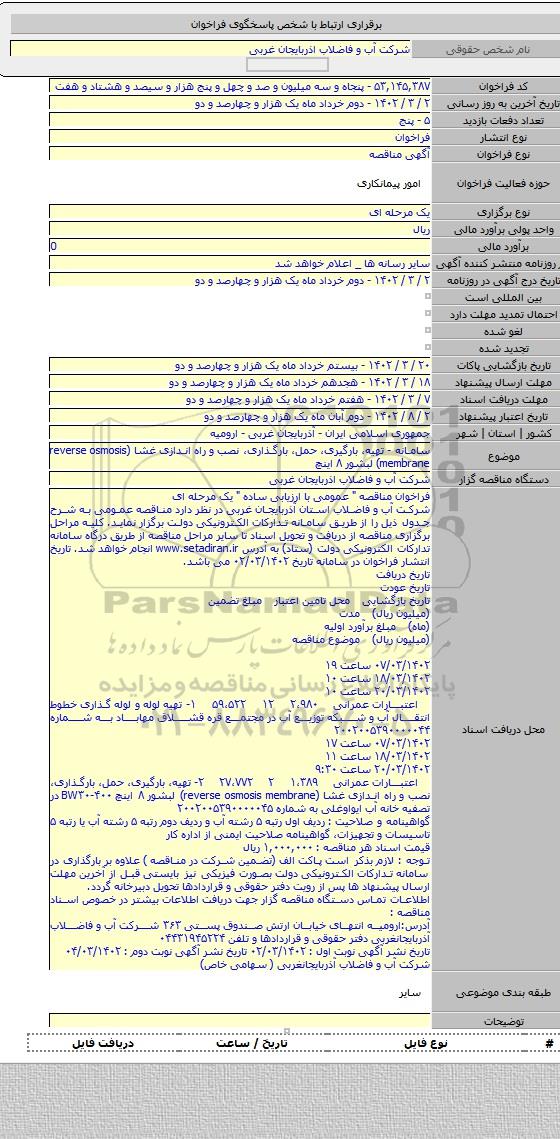 برقراری ارتباط با شخص پاسخگوی فراخوان
نام شخص حقوقی شرکت آب و فاضلاب اذربایجان غربی
کد فراخوان ۵۳,۱۴۵,۳۸۷ - پنجاه و سه میلیون و صد و چهل و پنج هزار و سیصد و هشتاد و هفت
تاریخ آخرین به روز رسانی ۲ / ۳ / ۱۴۰۲ - دوم خرداد ماه یک هزار و چهارصد و دو
تعداد دفعات بازدید ۵ - پنج
نوع انتشار فراخوان
نوع فراخوان آگهی مناقصه
حوزه فعالیت فراخوان امور پیمانکاری
نوع برگزاری یک مرحله ای
واحد پولی برآورد مالی ریال
برآورد مالی 0
روزنامه منتشر کننده آگهی سایر رسانه ها _ اعلام خواهد شد
تاریخ درج آگهی در روزنامه ۲ / ۳ / ۱۴۰۲ - دوم خرداد ماه یک هزار و چهارصد و دو
بین المللی است
احتمال تمدید مهلت دارد
لغو شده
تجدید شده
تاریخ بازگشایی پاکات ۲۰ / ۳ / ۱۴۰۲ - بیستم خرداد ماه یک هزار و چهارصد و دو
مهلت ارسال پیشنهاد ۱۸ / ۳ / ۱۴۰۲ - هجدهم خرداد ماه یک هزار و چهارصد و دو
مهلت دریافت اسناد ۷ / ۳ / ۱۴۰۲ - هفتم خرداد ماه یک هزار و چهارصد و دو
تاریخ اعتبار پیشنهاد ۲ / ۸ / ۱۴۰۲ - دوم آبان ماه یک هزار و چهارصد و دو
کشور | استان | شهر جمهوری اسلامی ایران - آذربایجان غربی - ارومیه
موضوع سامانه - تهیه، بارگیری، حمل، بارگذاری، نصب و راه اندازی غشا (reverse osmosis
membrane) لبشور ۸ اینچ
دستگاه مناقصه گزار شرکت آب و فاضلاب اذربایجان غربی
محل دریافت اسناد
فراخوان مناقصه " عمومی با ارزیابی ساده " یک مرحله ای
شرکت آب و فاضلاب استان آذربایجان غربی در نظر دارد مناقصه عمومی به شرح
جدول ذیل را از طریق سامانه تدارکات الکترونیکی دولت برگزار نماید. کلیه مراحل
برگزاری مناقصه از دریافت و تحویل اسناد تا سایر مراحل مناقصه از طریق درگاه سامانه
تدارکات الکترونیکی دولت (ستاد) به آدرس www.setadiran.ir انجام خواهد شد. تاریخ
انتشار فراخوان در سامانه تاریخ ۰۲/۰۳/۱۴۰۲ می باشد.
تاریخ دریافت
تاریخ عودت
تاریخ بازگشایی محل تامین اعتبار مبلغ تضمین
(میلیون ریال) مدت
(ماه) مبلغ برآورد اولیه
(میلیون ریال) موضوع مناقصه
۰۷/۰۳/۱۴۰۲ ساعت ۱۹
۱۸/۰۳/۱۴۰۲ ساعت ۱۰
۲۰/۰۳/۱۴۰۲ ساعت ۱۰
اعتبارات عمرانی ۲،۹۸۰ ۱۲ ۵۹،۵۲۲ ۱- تهیه لوله و لوله گذاری خطوط
انتقال آب و شبکه توزیع آب در مجتمع قره قشلاق مهاباد به شماره
۲۰۰۲۰۰۵۳۹۰۰۰۰۰۴۴
۰۷/۰۳/۱۴۰۲ ساعت ۱۷
۱۸/۰۳/۱۴۰۲ ساعت ۱۱
۲۰/۰۳/۱۴۰۲ ساعت ۹:۳۰
اعتبارات عمرانی ۱،۳۸۹ ۲ ۲۷،۷۷۲ ۲- تهیه، بارگیری، حمل، بارگذاری،
نصب و راه اندازی غشا (reverse osmosis membrane) لبشور ۸ اینچ BW۳۰-۴۰۰ در
تصفیه خانه آب ایواوغلی به شماره ۲۰۰۲۰۰۵۳۹۰۰۰۰۰۴۵
گواهینامه و صلاحیت : ردیف اول رتبه ۵ رشته آب و ردیف دوم رتبه ۵ رشته آب یا رتبه ۵
تاسیسات و تجهیزات، گواهینامه صلاحیت ایمنی از اداره کار
قیمت اسناد هر مناقصه : ۱,۰۰۰,۰۰۰ ریال
توجه : لازم بذکر است پاکت الف (تضمین شرکت در مناقصه ) علاوه بر بارگذاری در
سامانه تدارکات الکترونیکی دولت بصورت فیزیکی نیز بایستی قبل از اخرین مهلت
ارسال پیشنهاد ها پس از رویت دفتر حقوقی و قراردادها تحویل دبیرخانه گردد.
اطلاعات تماس دستگاه مناقصه گزار جهت دریافت اطلاعات بیشتر در خصوص اسناد
مناقصه :
آدرس:ارومیه انتهای خیابان ارتش صندوق پستی ۳۶۳ شرکت آب و فاضلاب
آذربایجانغربی دفتر حقوقی و قراردادها و تلفن ۰۴۴۳۱۹۴۵۲۲۴
تاریخ نشر آگهی نوبت اول : ۰۲/۰۳/۱۴۰۲ تاریخ نشر آگهی نوبت دوم : ۰۴/۰۳/۱۴۰۲
شرکت آب و فاضلاب آذربایجانغربی ( سهامی خاص)
ParsNamadData
مرکز فرآوری اطلاعات پارس نماد داده ها
پایگاه اطلاع رسانی مناقصه و مزایده
۰۲۱-۸۸۳۴۹۶۷۰-۵
طبقه بندی موضوعی سایر
توضیحات
# نوع فایل تاریخ / ساعت دریافت فایل